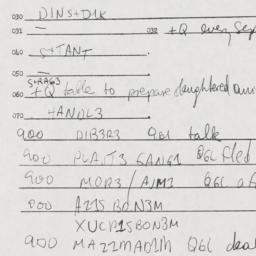 030 DINS+D1K
031 — 032 +Q every Sep
040 S+TANT
050 —
S+RAG3
060 +Q table to prepare slaughtered ani
070 HANDL3
900 DIB3R3 Q6L talk
900 PLAIT3 GANG1 Q6L fled
900 MOR3/AJM3 Q6L af
900 A21S BON3M
XUCP1SBON3M
900 MAZZMAD1M Q6L deal